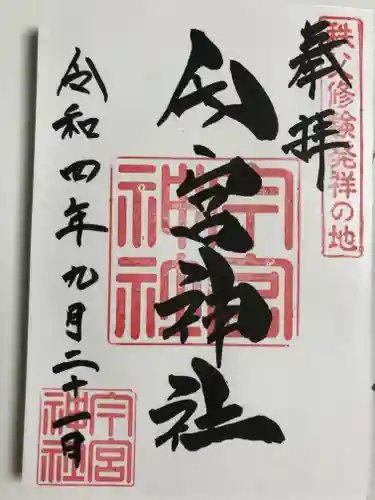 秩父修験発祥の地
奉拝
今宮神社
今宮神社
令和四年九月二十一日
今宮神社